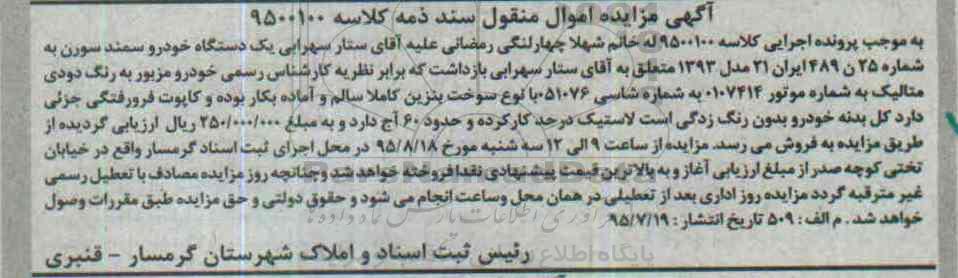 آگهی مزایده اموال منقول سند ذمه کلاسه ۹۵۰۰۱۰۰
به موجب پرونده اجرایی کلاسه ۹۵۰۰۱۰۰ له خانم شهلا چهارلنگی رمضانی علیه آقای ستار سهرابی یک دستگاه خودرو سمند سورن به
شماره ۲۵ ن ۴۸۹ ایران ۲۱ مدل ۱۳۹۳ متعلق به آقای ستار سهرابی بازداشت که برابر نظریه کارشناس رسمی خودرو مزبور به رنگ دودی
متالیک به شماره موتور ۰۱۰۷۴۱۴ به شماره شاسی ۰۵۱۰۷۶ با نوع سوخت بنزین کاملا سالم و آماده بکار بوده و کاپوت فرورفتگی جزئی
دارد کل بدنه خودرو بدون رنگ زدگی است لاستیک درحد کارکرده و حدود ۶۰ آج دارد و به مبلغ ۲۵۰/۰۰۰/۰۰۰ ریال ارزیابی گردیده از
طریق مزایده به فروش می رسد. مزایده از ساعت ۹ الی ۱۲ سه شنبه مورخ ۹۵/۸/۱۸ در محل اجرای ثبت اسناد گرمسار واقع در خیابان
تختی کوچه صدر از مبلغ ارزیابی آغاز و به بالاترین قیمت پیشنهادی نقدا فروخته خواهد شد وچنانچه روز مزایده مصادف با تعطیل رسمی
غیر مترقبه گردد مزایده روز اداری بعد از تعطیلی در همان محل وساعت انجام می شود و حقوق دولتی و حق مزایده طبق مقررات وصول
خواهد شد . م الف : ۵۰۹ تاریخ انتشار : ۹۵/۷/۱۹
رئیس ثبت اسناد و املاک شهرستان گرمسار - قنبری